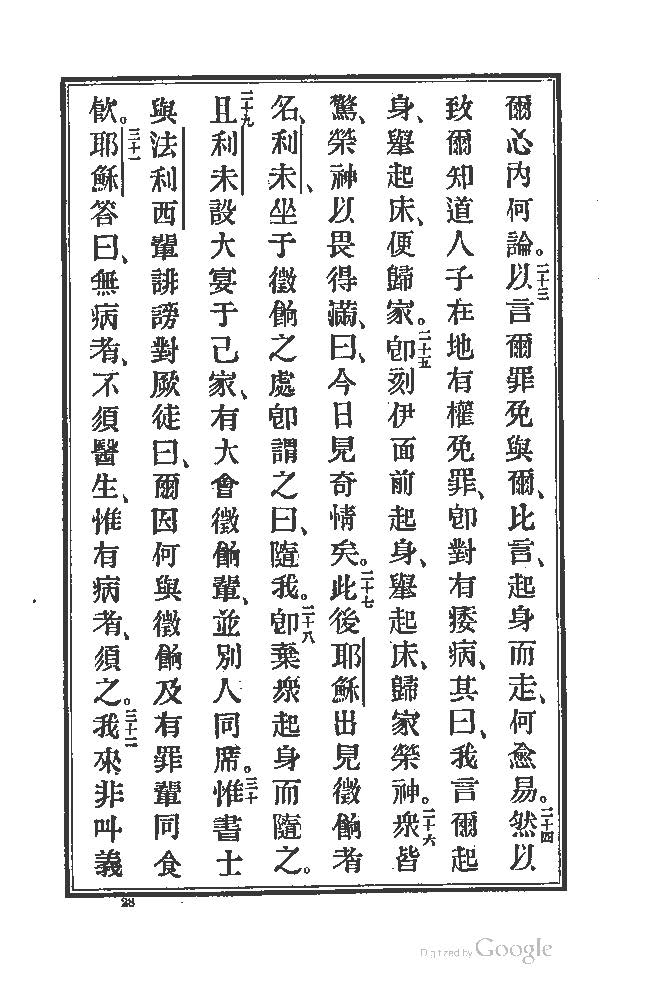 爾心內何論。二十三以言爾罪免與爾、比言、起身而走、何愈易。二十四然以
致爾知道人子在地有權免罪、卽對有痿病、其曰、我言爾起
身、舉起床、便歸家。二十五卽刻伊面前起身、舉起床、歸家榮神。二十六衆皆
驚、榮神以畏得滿、曰、今日見奇情矣。二十七此後耶穌出見徵餉者
名、利未、坐于徵餉之處卽謂之曰、隨我。二十八卽棄衆起身而隨之。
二十九且利未設大宴于己家、有大會徵餉輩、並別人同席。三十惟書士
與法利西輩誹謗對厥徒曰、爾因何與徵餉及有罪輩同食
飮。三十一耶穌答曰、無病者、不須醫生、惟有病者、須之。三十二我來非叫義
28
Digitized by Google